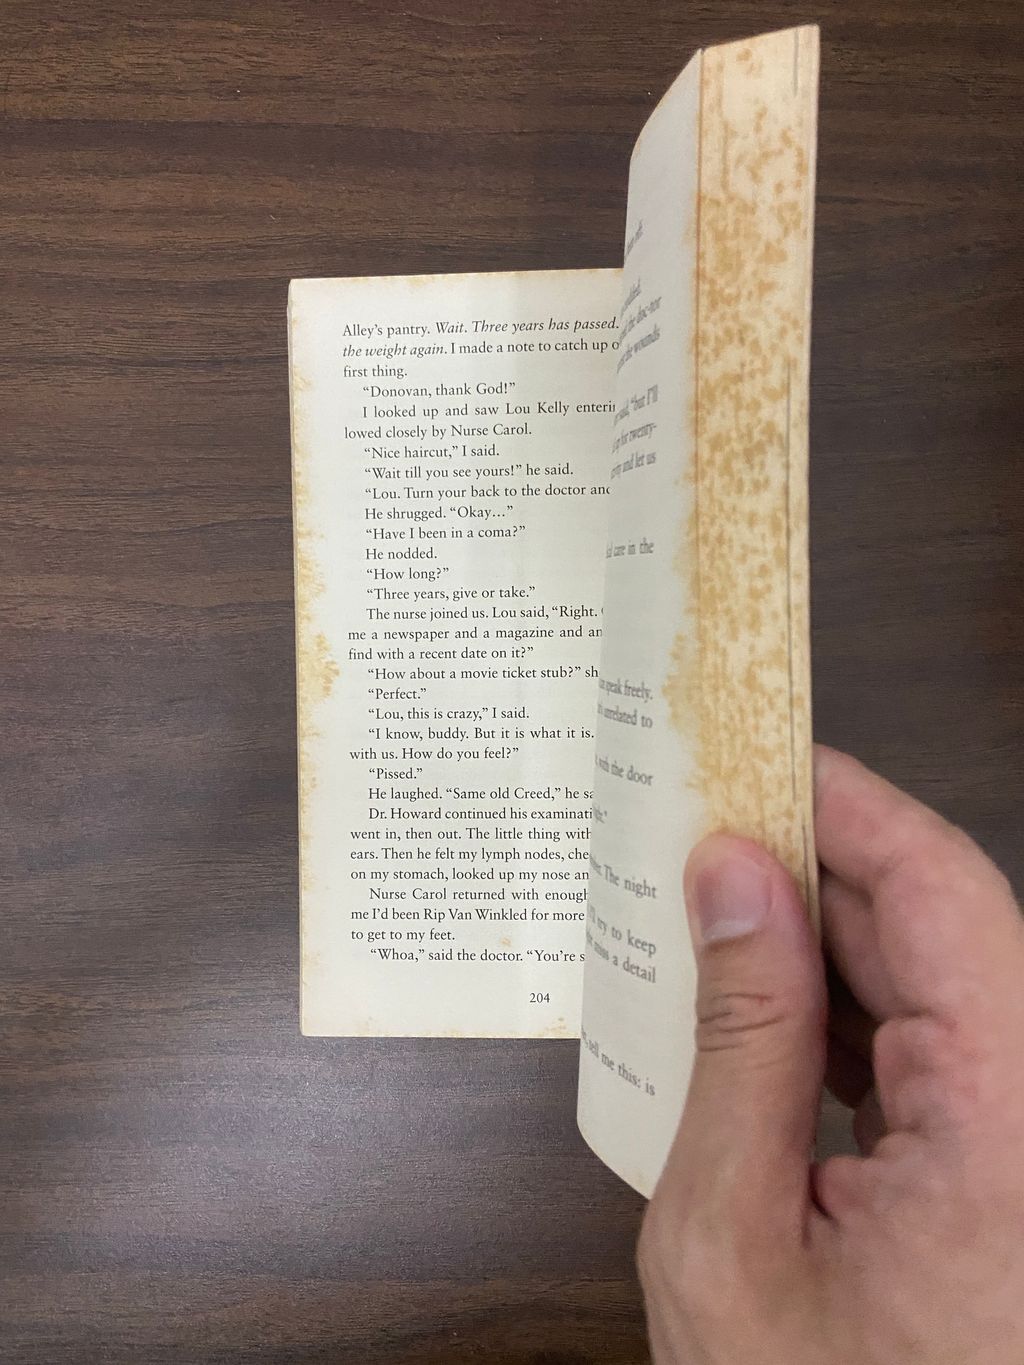 Alley's pantry. Wait. Three years has passed.
the weight again. I made a note to catch up
first thing.
“Donovan, thank God!”
I looked up and saw Lou Kelly
lowed closely by Nurse Carol.
“Nice haircut,” I said.
“Wait till you see yours!” he said.
“Lou. Turn your back to the doctor and
He shrugged. “Okay…”
“Have I been in a coma?”
He nodded.
“How long?”
“Three years, give or take.”
The nurse joined us. Lou said, “Right.
me a newspaper and a magazine and
find with a recent date on it?”
“How about a movie ticket stub?”
“Perfect.”
“Lou, this is crazy,” I said.
“I know, buddy. But it is what it is.
with us. How do you feel?”
“Pissed.”
He laughed. “Same old Creed,” he
Dr. Howard continued his
went in, then out. The little thing with
ears. Then he felt my lymph nodes,
on my stomach, looked up my nose
Nurse Carol returned with enough
me I'd been Rip Van Winkled for more
to get to my feet.
“Whoa,” said the doctor. “You're
204
the doc-nor
the wounds
“but I'll
for twenty-
and let us
care in the
speak freely.
unrelated to
with the door
The night
try to keep
miss a detail
tell me this: is